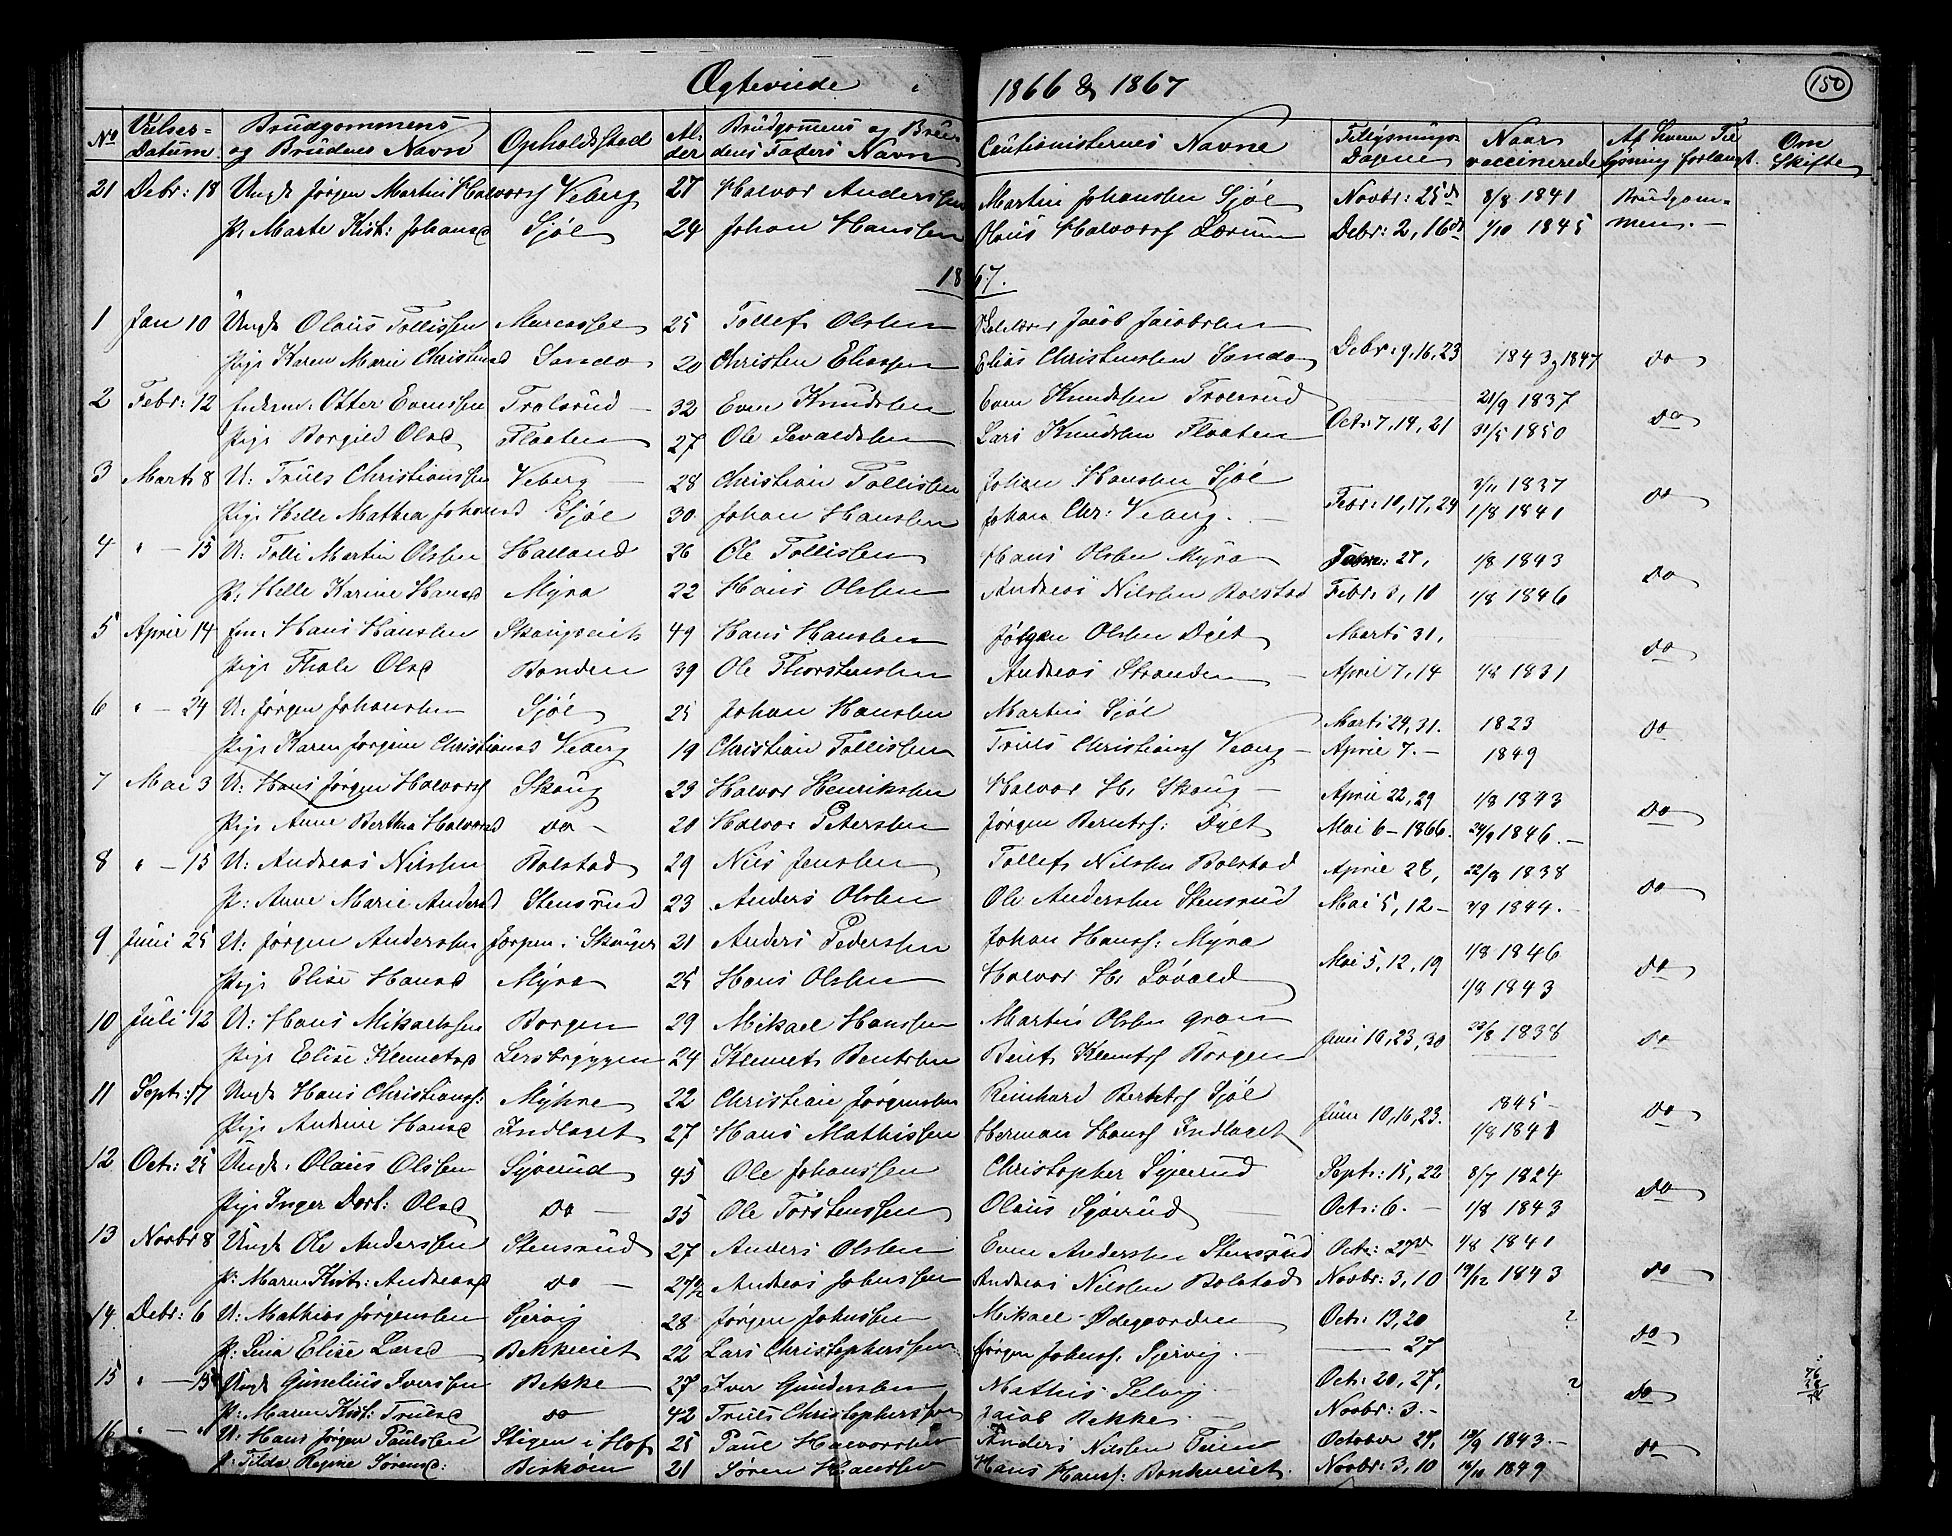 Ægteviede i 1866 & 1867
150
No Vielses= Datum Brudgommens og Brudens Navn Opholdsted Alder Brudgommens og Brudens Faders Navn Cautionisternes Navne Tillysnings Dagene Naar vaccinerede Af hvem Tillysning forlangt. Om Skifte
21 Debr: 18 Ungk Jørgen Martin Halvorss Veberg 27 Halvor Anderssen Martin Johanssen Sjøl Novbr: 25de 8/8 1841 Brudgom=
P: Marte Kist: Johansd Sjøl 24 Johan Hanssen Olaus Halvorss Lærum Debr: 2, 16de 1/10 1845 men. —
1867.
1 Jan 10 Ungk Olaus Tollissen Marcussel 25 Tollef Olsen Jacob Jacobsen
Pige Karen Marie Christensd Sando 20 Christen Eliassen Elias Christensen Sando Debr: 9, 16, 23 1843 & 1847 do
2 Febr: 12 Enkem: Otter Evenssen Trolsrud — 32 Even Knudsen Even Knudsen Trolsrud 21/9 1837
Pige Borgild Olsd Flaaten 27 Ole Sevaldsen Lars Knudsen Flaaten Oct: 7, 14, 21 31/5 1850 do
3 Marts 8 U: Truls Christianssen Veberg — 28 Christian Tollissen Johan Hanssen Sjøl 3/11 1837
Pige Helle Mathea Johansd Sjøl 30 Johan Hanssen Johan Chr: Veberg. — Febr: 10, 17, 24 1/8 1841 do
4 " — 15 U: Tolli Martin Olssen Haland 26 Ole Tollissen Hans Olsen Myra 27, 1/8 1843
P: Helle Karine Hansd Myra 22 Hans Olsen Andreas Nilssen Bolstad Febr: 3, 10 1/8 1846 do
5 April 14 Em: Hans Hanssen 49 Hans Hanssen Jørgen Olsen Dølt Marts 31,
Pige Thale Olsd Bonden 39 Ole Thorstenssen Andreas Stranden — April 7, 14 1/8 1831 do
6 " — 24 U: Jørgen Johanssen Sjøl 25 Johan Hanssen Martin Sjøl Marts 24, 31. 1823
Pige Karen Jørgine Christiansd Veberg 19 Christian Tollissen Truls Christianss Veberg — April 7. — 1849 do
7 Mai 3 U: Hans Jørgen Halvorss Skoug 23 Halvor Henrikssen Halvor H. Skoug — April 22, 29 1/8 1843
Pige Anne Bertha Halvorsd do — 20 Halvor Peterssen Jørgen Berntss: Dølt Mai 6 — 1866. 24/9 1846. — do
8 " — 15 U: Andreas Nilssen Bolstad 29 Nils Jenssen Tollef Nilssen Bolstad April 28, 22/8 1838
P: Anne Marie Andersd Stensrud 23 Anders Olsen Ole Anderssen Stensrud Mai 5, 12 — 1844. do
9 Juni 25 U: Jørgen Anderssen Jorpen i Skouger 21 Anders Pedersen Johan Hanss: Myra 1/8 1846
Pige Elise Hansd Myra 25 Hans Olsen Halvor H. Løvald Mai 5, 12, 19 1/8 1843 do
10 Juli 12 U: Hans Mikaelssen Borgen 29 Mikael Hanssen Martin Olsen Gran 1838
Pige Elise Klemetsd Lersbryggen 24 Klemet Bentssen Bent Klemtss Borgen Juni 16, 23, 30 do
11 Septr: 17 Ungk Hans Christianss: Myhre 22 Christian Jørgenssen Reinhard Berntss Sjøl 1845 —
Pige Andrine Hansd Indlaget 27 Hans Mathissen Herman Hanss Indlaget Juni 10, 16, 23. 1/8 1841 do
12 Oct: 25 Ungk: Olaus Olssen Sjverud 45 Ole Johanssen Christopher Sjverud Sept: 15, 22 8/7 1824
Pige Inger Dort: Olsd do — 35 Ole Torstenssen Olaus Sjverud Oct: 6. — 1/8 1843 do
13 Novbr 8 Ungk Ole Anderssen Stensrud 27 Anders Olsen Even Anderssen Stensrud Oct: 27de 1/8 1841
P: Maren Kist: Andreasd do — 27 1/2 Andreas Johnssen Andreas Nilssen Bolstad Novbr: 3, 10 19/12 1843 do
14. Debr: 6 U: Mathias Jørgenssen Sjervig 28 Jørgen Johnssen Mikael Ødegaarden Oct: 13, 20 ?
P: Lina Elise Larsd Bekkeviet 22 Lars Christopherssen Jørgen Johnss: Sjervig. — — 27 do
15 " — 15 Ungk Gunelius Iverssen Bekke 27 Iver Gunderssen Mathis Selvig Oct: 20, 27, ?
P: Maren Kist: Trulsd do 42 Truls Christopherssen Jacob Bekke — Novbr: 3. — do
16 " — " U: Hans Jørgen Paulssen Stigen i Hof 25 Paul Halvorssen Anders Nilssen Teien October 27, 19/9 1843. —
P: Tilda Regine Sørensd: Birkom 21 Søren Hanssen Hans Hanss: Novbr: 3, 10 16/10 1849 do